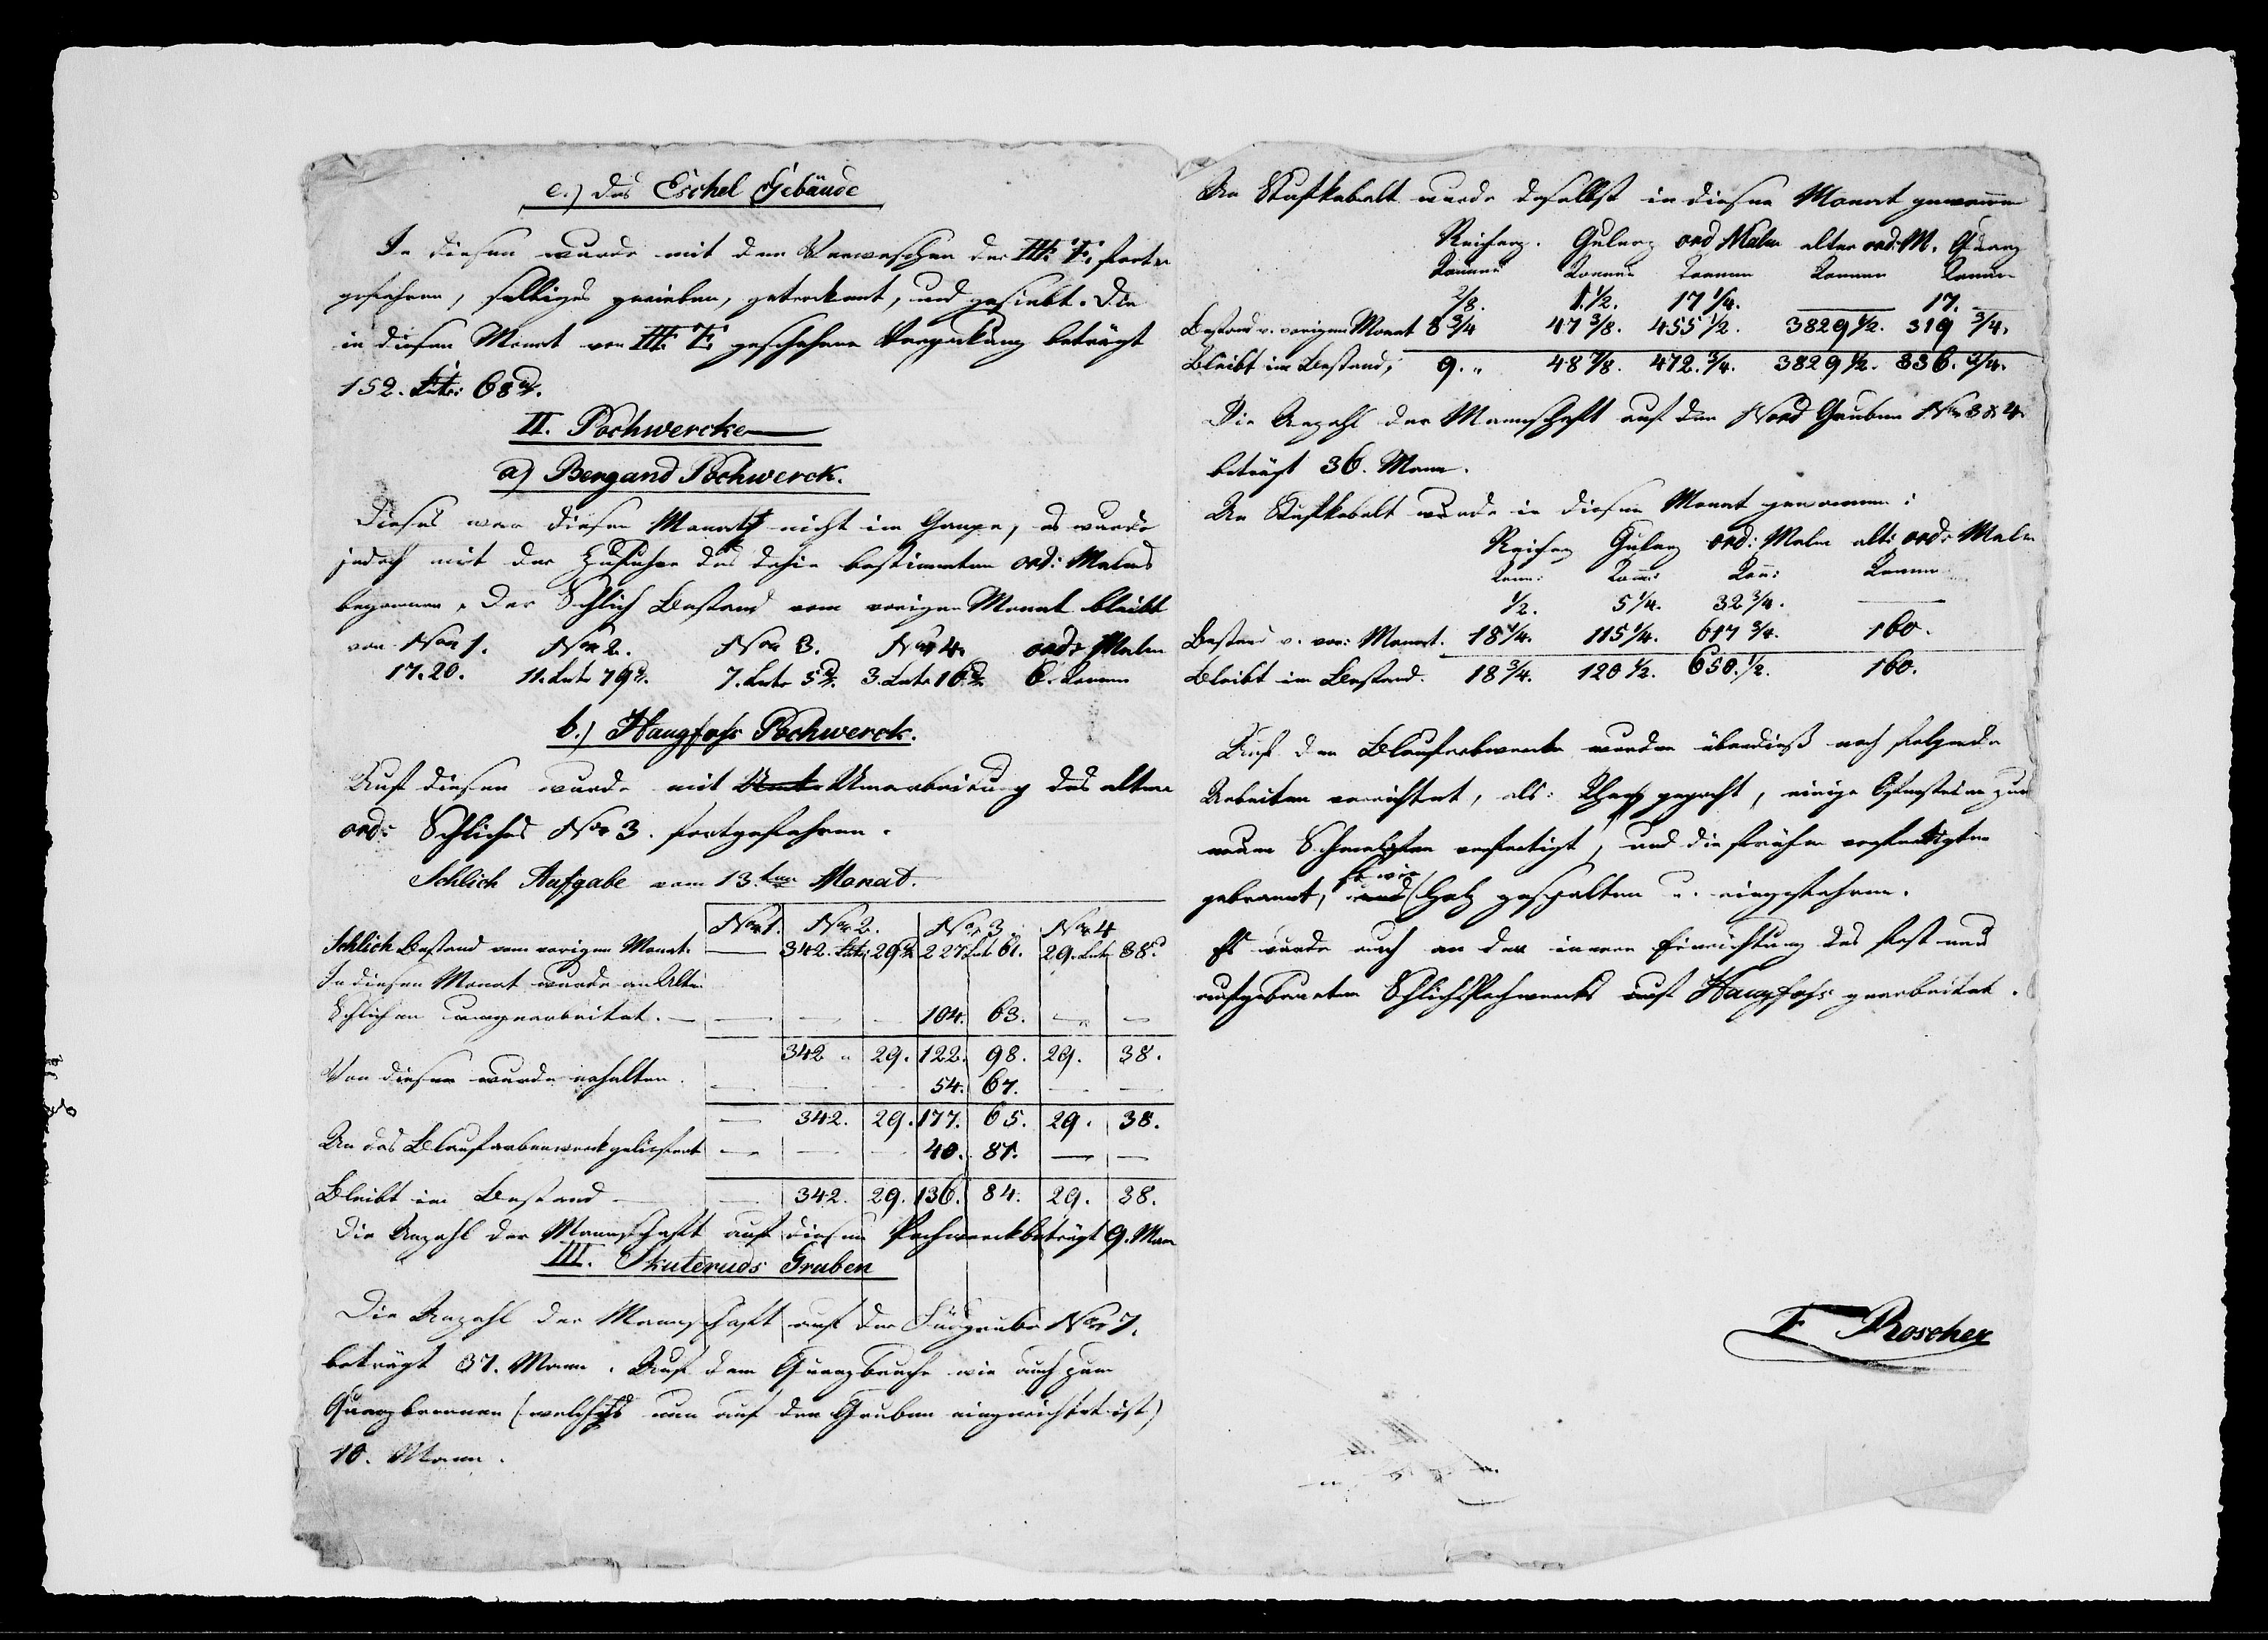 e.) das Eschel Gebäude
In diesem wurde mit dem Verwaschen der III. E. fort
gefahren, selbiges gerieben, getrocknet, und gesiebt. Die
in diesem Monat von III. E. geschehene Verpackung beträgt
152. Cntr: 68 ℔.
II. Pochwercke
a) Bergand Pochwerck.
Dieses war diesen Monat nicht im Gange, es wurde
jedoch mit der Zufuhre des dahin bestimmten ord: Malms
begonnen. Der Schlich Bestand vom vorigen Monat bleibt
von Nor 1. Nor 2. Nor 3. Nor 4. ordr Malm
17. 20. 11. Cntr 79 ℔. 7. Cntr 5 ℔. 3. Cntr 16 ℔ 6. Tonnen
b.) Haugfoss Pochwerck.
Auf diesem wurde mit Umarbeitung des alten
ord: Schliches Nor 3. fortgefahren.
Schlich Aufgabe vom 13.ten Monat.
Nor 1. Nor 2. Nor 3. Nor 4
Schlich Bestand vom vorigen Monat. — 342. Cntr: 29 ℔ 227 Cntr 61. 29. Cntr 38 ℔
In diesem Monat wurde an Alten
Schlichen umgearbeitet. — — — — 104. 63. — —
342 " 29. 122. 98. 29. 38.
Von diesen wurde erhalten. — — — 54. 67. — —
— 342. 29. 177. 65. 29. 38.
An das Blaufarbenwerk geliefert — — — 40. 81. — —
Bleibt im Bestand — — 342. 29. 136. 84. 29. 38.
Die Anzahl der Mannschaft auf diesem Pochwerck beträgt 9. Mann
III. Skuteruds Gruben
Die Anzahl der Mannschaft auf der Südgrube Nor 7.
beträgt 37. Mann. Auf dem Quarzbruche wie auch zum
Quarzbrennen (welches nun auf den Gruben eingerichtet ist)
10. Mann.
An Stufkobalt wurde daselbst in diesem Monat gewonnen
Reicherz. Gulerz ord Malm alter ord: M. Quarz
Tonnen Tonnen Tonnen Tonnen Tonnen
2/8. 1. 1/2. 17 1/4. — 17. —
Bestand v. vorigen Monat 8 3/4 47 3/8. 455 1/2. 3829 1/2. 319 3/4.
Bleibt im Bestand, 9. " 48 7/8. 472. 3/4. 3829 1/2. 336. 3/4.
Die Anzahl der Mannschaft auf den Nord Gruben Nor 3 & 4.
beträgt 36. Mann.
An Stufkobalt wurde in diesem Monat gewonnen:
Reicherz Gulerz ord: Malm alt: ordr Malm
Tonn: Tonn: Tonn: Tonnen
1/2. 5 1/4. 32 3/4. —
Bestand v. vor: Monat. 18 1/4. 115 1/4. 617 3/4. 160.
Bleibt im Bestand. 18 3/4. 120 1/2. 650. 1/2. 160.
Auf dem Blaufarbwerke wurden überdieß noch folgende
Arbeiten verrichtet, als: gepocht, einige Ofensteine zum
neuen Schmelzofen verfertigt, und die früher verfertigten
gebrannt, so wie Holz gespalten u. eingefahren.
Es wurde auch an der innern Einrichtung des fast neu
aufgebauten Schlich Pochwercks auf Haugfoss gearbeitet.
F Roscher